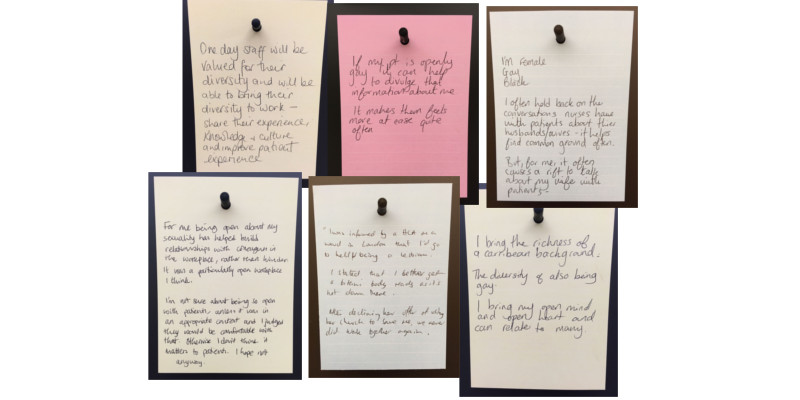 One day staff will be
valued for their
diversity and will be
able to bring their
diversity to work –
share their experience,
knowledge + culture
and improve patient
experience
If my pt is openly
gay it can help
to divulge that
information about me
It makes them feels
more at ease quite
often
I'm Female
Gay
Black
I often hold back on the
conversations nurses have
with patients about their
husbands/wives - it helps
find common ground often.
But, for me, it often
causes a rift to talk
about my wife with
patients -
For me being open about my
sexuality has helped build
relationships with colleagues in
the workplace, rather than hinder.
It was a particularly open workplace
I think.
I'm not sure about being so open
with patients unless it was in
an appropriate context and I judged
they would be comfortable with
that. Otherwise I don't think it
matters to patients. I hope not
anyway.
"I was informed by a HCA on a
ward in London that I'd go
to hell being a lesbian.
I stated that I
not down there.
After declining her offer of
her church to save me, we never
did work together again.
I bring the richness of
a carribean background.
The diversity of also being
gay
I bring my open mind
and open heart and
can relate to many